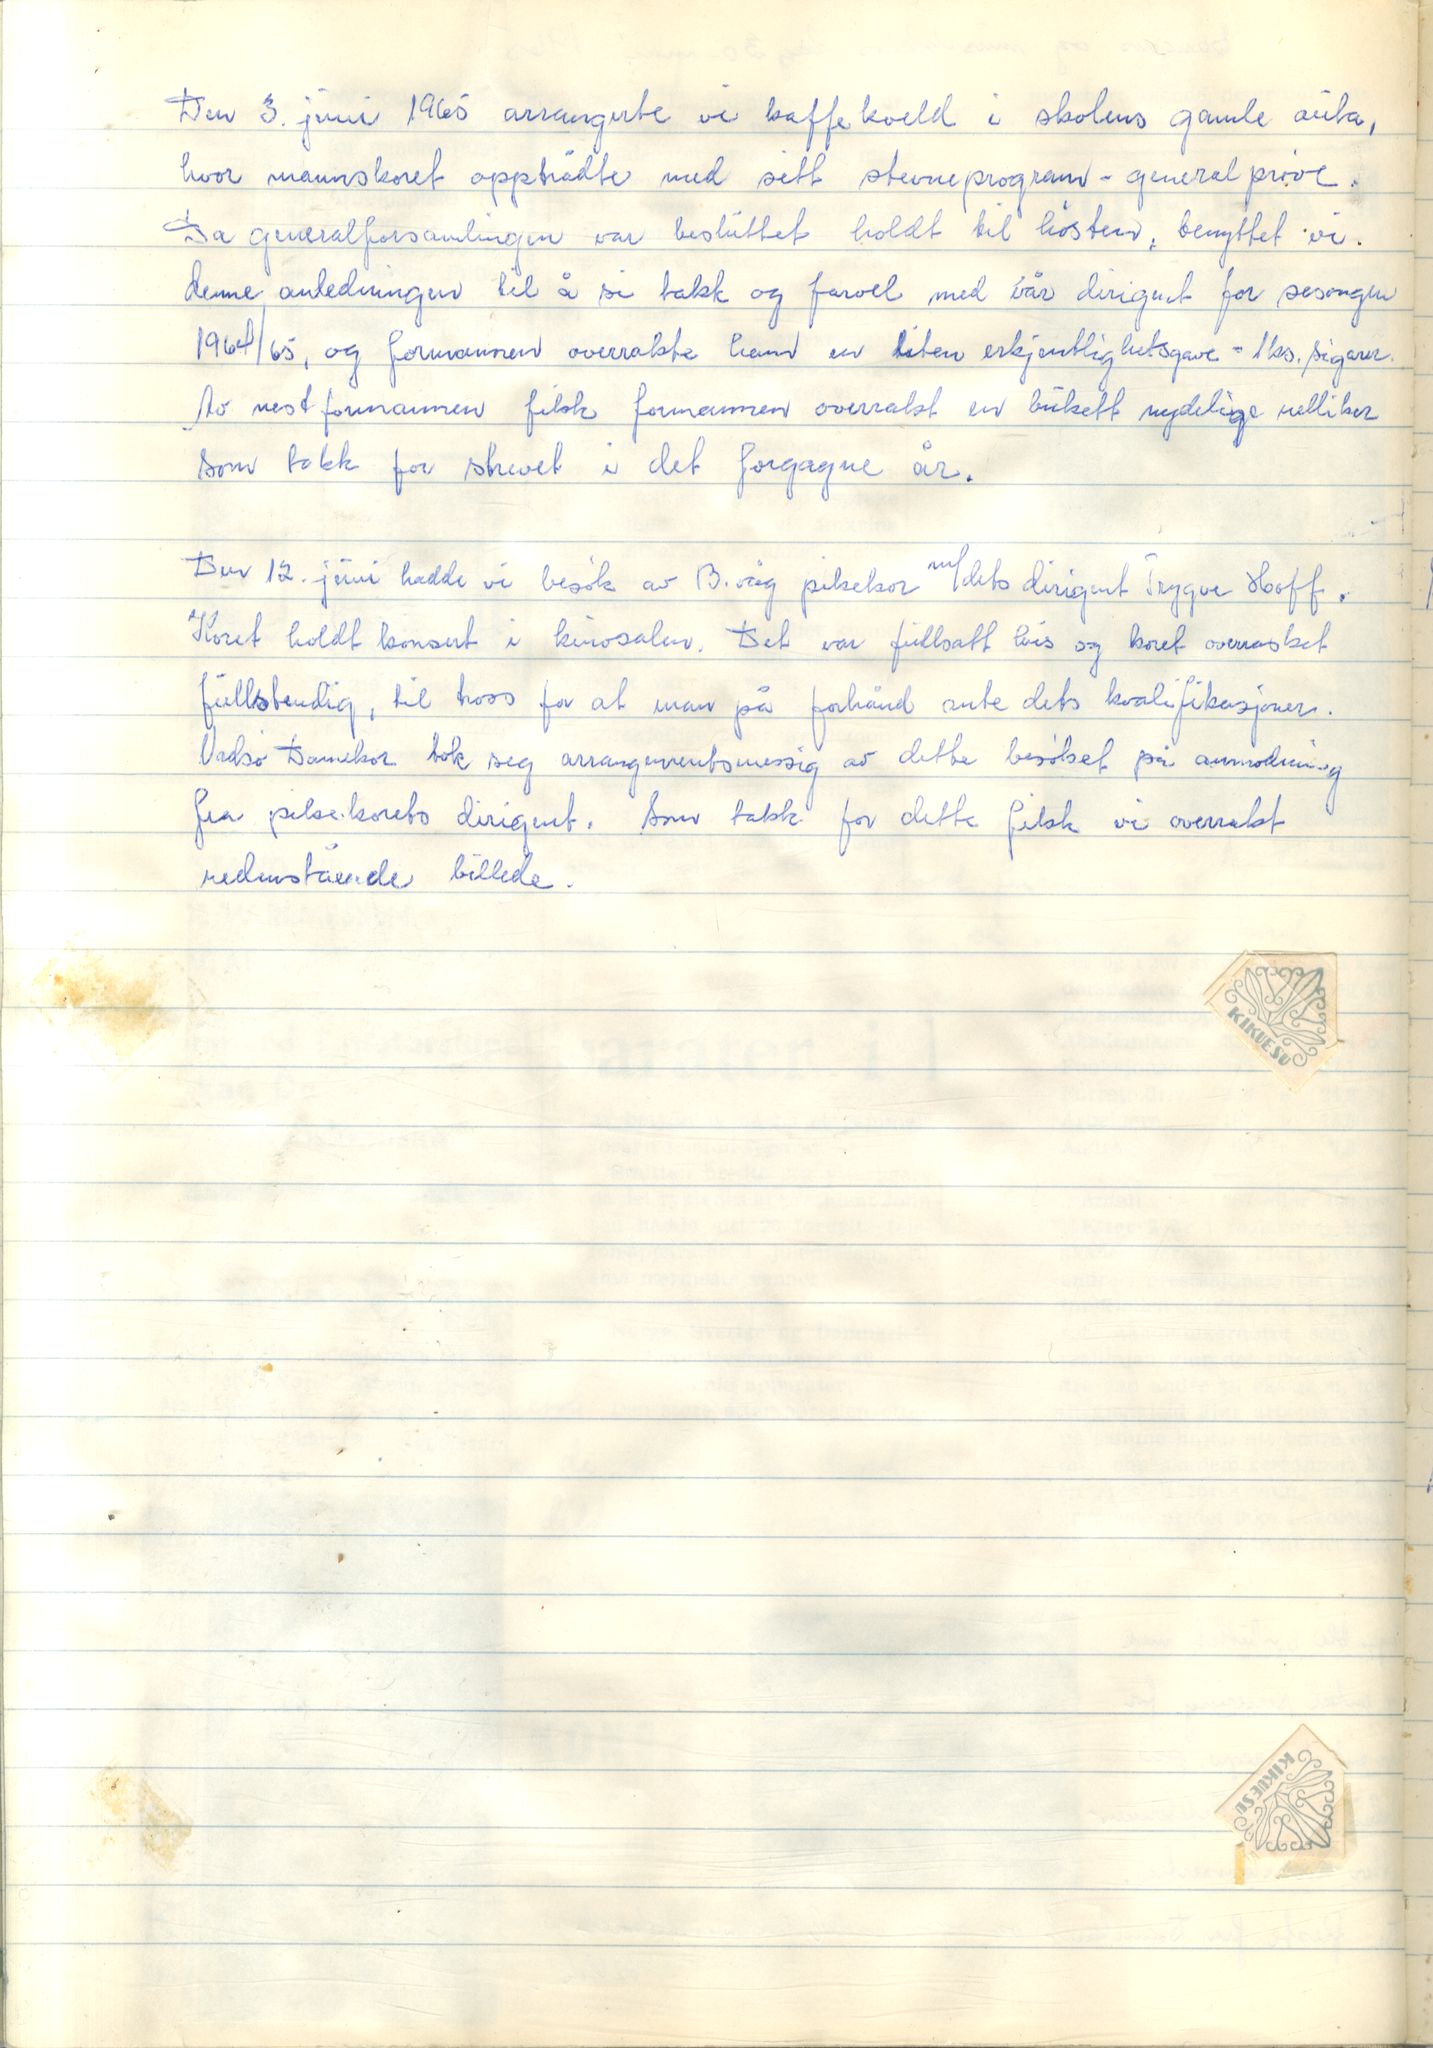 Den 3. juni 1965 arrangerte vi kaffekveld i skolens gamle aula,
hvor mannskoret opptrådte med sitt stevneprogram - generalprøve.
Da generalforsamlingen var besluttet holdt til høsten, benyttet vi
denne anledningen til å si takk og farvel med vår dirigent for sesongen
1964/65, og formannen overrakte ham en liten erkjentlighetsgave - 1 ks. sigarer.
Av nestformannen fikk formannen overrakt en bukett nydelige nelliker
som takk for strevet i det forgagne år.
Den 12. juni hadde vi besøk av B.våg pikekor m/dets dirigent Trygve Hoff.
Koret holdt konsert i kinosalen. Det var fullsatt hus og koret overrasket
fullstendig, til tross for at man på forhånd ante dets kvalifikasjoner.
Vadsø Damekor tok seg arrangementsmessig av dette besøket på anmodning
fra pikekorets dirigent. Som takk for dette fikk vi overrakt
nedenstående billede.
KIKUESU
KIKUESU